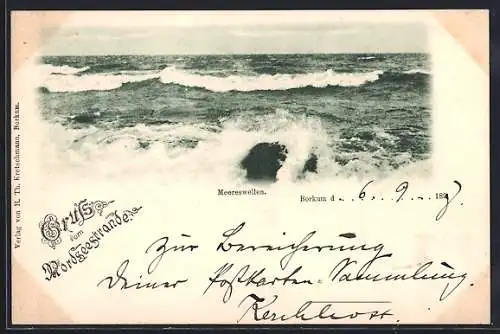 Verlag von H. Th. Kretschmann, Borkum.
Meereswellen.
Borkum d. 6. 9. 189
Gruss
vom
Nordseestrande.
Zur Bereicherung
Deiner Postkarten-Sammlung.